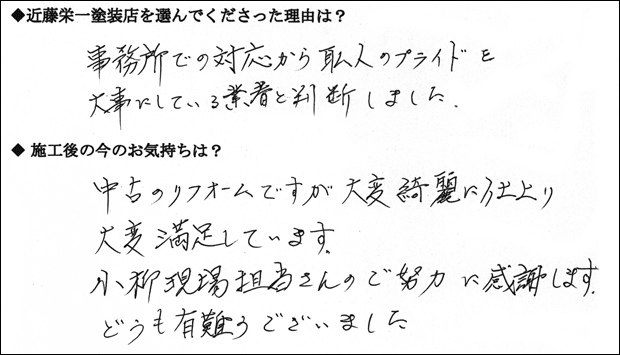 ◆近藤栄一塗装店を選んでくださった理由は？
事務所での対応から職人のプライドを
大事にしている業者と判断しました.
◆ 施工後の今のお気持ちは？
中古のリフォームですが大変綺麗に仕上り
大変満足しています.
小柳現場担当さんのご努力に感謝します.
どうも有難うございました